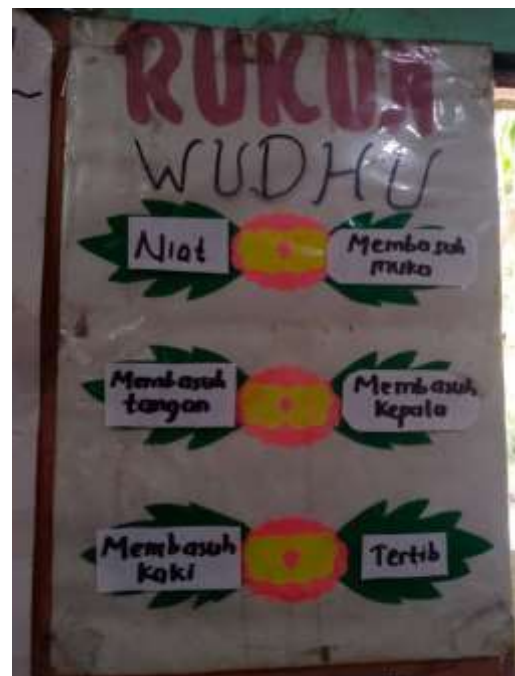 RUKUN
WUDHU
Niat
Membasuh
muka
Membasuh
tangan
Membasuh
Kepala
Membasuh
Kaki
Tertib